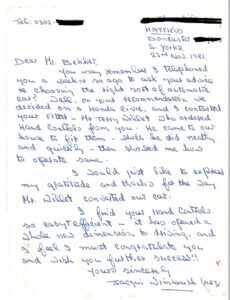 Tel: 0302-
HATFIELD
Doncaster
S. Yorks
23rd Nov. 1981
Dear Mr. Bekker,
You may remember I telephoned
you a week or so ago to ask your advice
re choosing the right sort of automatic
car? Well, on your recommendation we
decided on a Honda Civic, and I contacted
your Fitter - Mr Terry Willet who ordered
Hand Controls from you. He came to our
home to fit them - which he did neatly
and quickly - then showed me how
to operate same.
I would just like to express
my gratitude and thanks for the way
Mr. Willet converted our car.
I find your hand controls
so easy & efficient - it has opened a
whole new dimension to driving, and
I feel I must congratulate you
and wish you further success!!
Yours sincerely
Jacqui (Mrs)